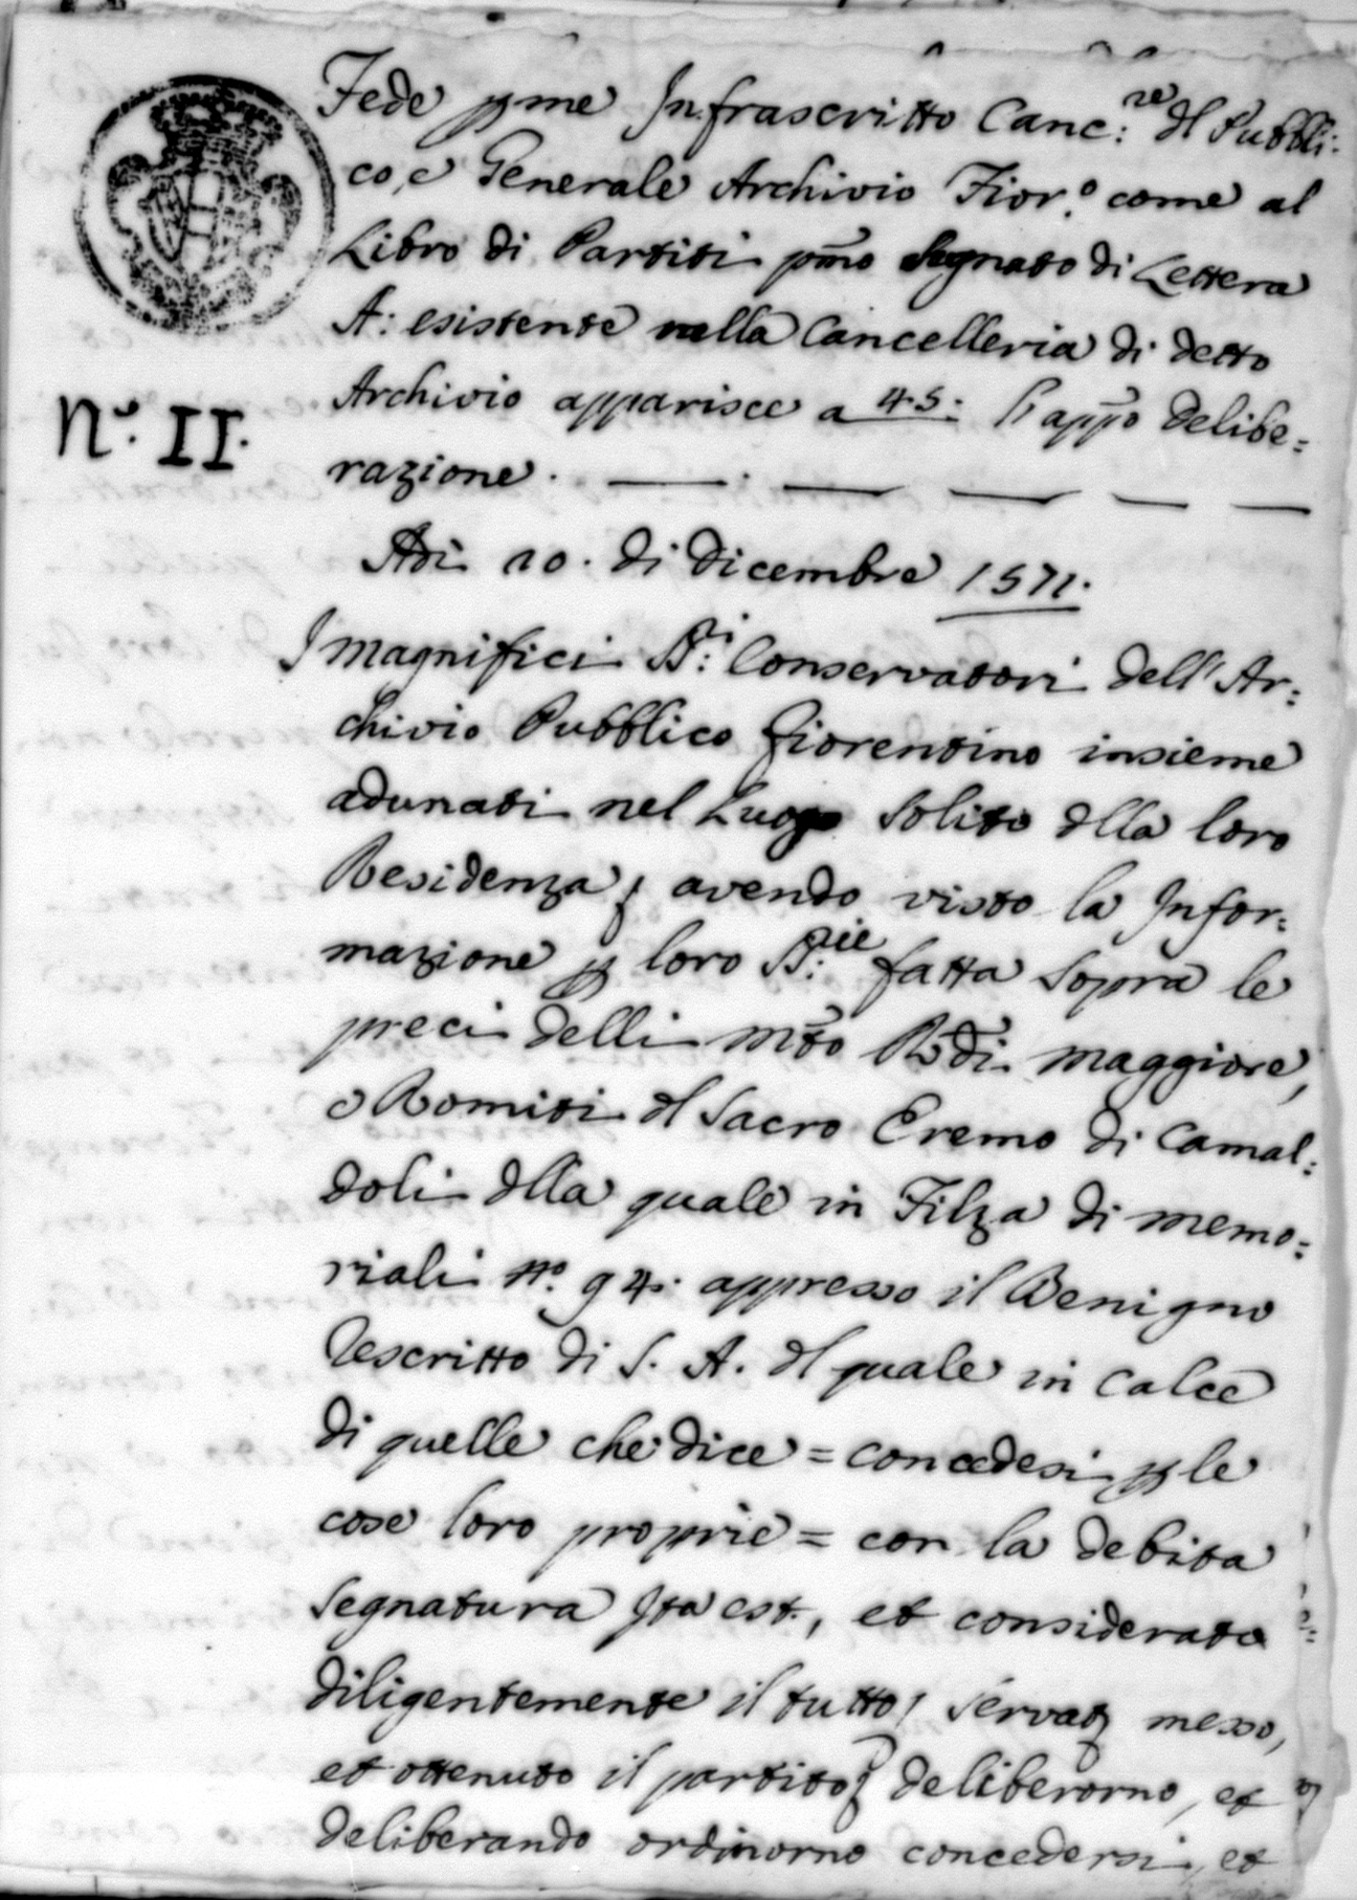 Fede p me Infrascritto Canc:re dl Pubbli:
co, e Generale Archivio Fior.o come al
Libro di Partiti pmo Segnato di Lettera
A: esistente nella Cancelleria di detto
Archivio apparisce a 45: l'appo Delibe=
razione.
N.o II.
Adi 10. di Dicembre 1571.
I Magnifici SS:ri Conservatori dell'Ar=
chivio Pubblico Fiorentino insieme
adunati nel Luogo Solito dlla loro
Residenza, avendo visto la Infor=
mazione p loro SS:rie fatta Sopra le
preci delli Mto Rdi Maggiore,
e Romiti dl Sacro Eremo di Camal=
doli dlla quale in Filza di memo=
riali No. 94. appresso il Benigno
Rescritto di S. A. dl quale in calce
di quelle che dice = concedesi p le
cose loro proprie = con la debita
Segnatura Ita est, et considerato
diligentemente il tutto, servatis messo,
et ottenuto il partito deliberorno, et
deliberando ordinorno concedersi, et